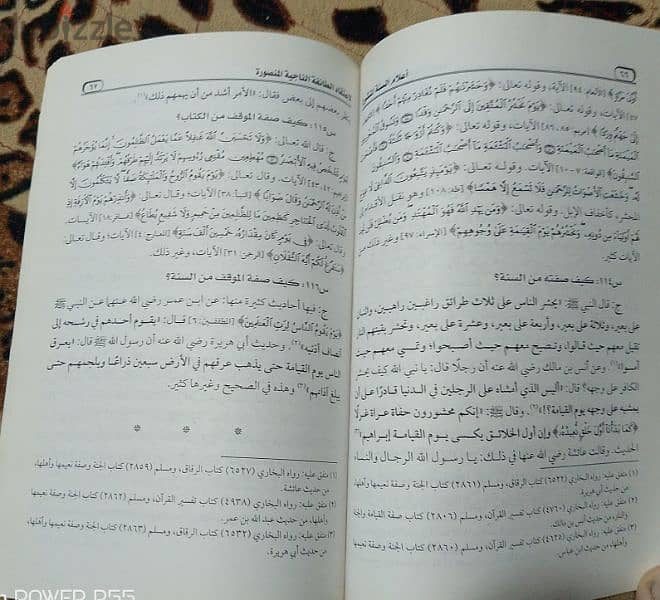 ٦٦
أعلام السنة المنشورة
أول مرة﴾ [الأنعام: ٩٤] الآية، وقوله تعالى: ﴿وَحَشَرْنَاهُمْ فَلَمْ نُغَادِرْ مِنْهُمْ أَحَدًا﴾ [الكهف:
٤٧] الآيات، وقوله تعالى: ﴿يَوْمَ نَحْشُرُ الْمُتَّقِينَ إِلَى الرَّحْمَنِ وَفْدًا ۝ وَنَسُوقُ الْمُجْرِمِينَ
إِلَى جَهَنَّمَ وِرْدًا﴾ [مريم: ٨٥، ٨٦] الآيات، وقوله تعالى: ﴿وَكُنْتُمْ أَزْوَاجًا ثَلَاثَةً ۝ فَأَصْحَابُ
الْمَيْمَنَةِ مَا أَصْحَابُ الْمَيْمَنَةِ ۝ وَأَصْحَابُ الْمَشْأَمَةِ مَا أَصْحَابُ الْمَشْأَمَةِ ۝ وَالسَّابِقُونَ
السَّابِقُونَ﴾ [الواقعة: ٧-١٠] الآيات. وقوله تعالى: ﴿يَوْمَئِذٍ يَتَّبِعُونَ الدَّاعِيَ لَا عِوَجَ
لَهُ وَخَشَعَتِ الْأَصْوَاتُ لِلرَّحْمَنِ فَلَا تَسْمَعُ إِلَّا هَمْسًا﴾ [طه: ١٠٨] وهو نقل الأقدام إلى
المحشر، كأخفاف الإبل. وقوله تعالى: ﴿وَمَنْ يَهْدِ اللَّهُ فَهُوَ الْمُهْتَدِ وَمَنْ يُضْلِلْ فَلَنْ تَجِدَ
لَهُمْ أَوْلِيَاءَ مِنْ دُونِهِ وَنَحْشُرُهُمْ يَوْمَ الْقِيَامَةِ عَلَى وُجُوهِهِمْ﴾ [الإسراء: ٩٧] وغير ذلك من
الآيات كثير.
س١١٤: كيف صفته من السنة؟
ج: قال النبي ﷺ: «يحشر الناس على ثلاث طرائق راغبين راهبين، واثنان
على بعير، وثلاثة على بعير، وأربعة على بعير، وعشرة على بعير، وتحشر بقيتهم النار
تقيل معهم حيث قالوا، وتصبح معهم حيث أصبحوا، وتمسي معهم حيث
أمسوا»(١). وعن أنس بن مالك رضي الله عنه أن رجلًا قال: يا نبي الله كيف يحشر
الكافر على وجهه؟ قال: «أليس الذي أمشاه على الرجلين في الدنيا قادرًا على أن
يمشيه على وجهه يوم القيامة؟!»(٢). وقال ﷺ: «إنكم محشورون حفاة عراة غرلًا
﴿كَمَا بَدَأْنَا أَوَّلَ خَلْقٍ نُعِيدُهُ﴾ وإن أول الخلائق يكسى يوم القيامة إبراهيم»(٣)
الحديث. وقالت عائشة رضي الله عنها في ذلك: يا رسول الله الرجال والنساء
(١) متفق عليه: رواه البخاري (٦٥٢٢) كتاب الرقاق، ومسلم (٢٨٦١) كتاب الجنة وصفة نعيمها وأهلها،
من حديث أبي هريرة.
(٢) متفق عليه: رواه البخاري (٤٧٦٠) كتاب تفسير القرآن، ومسلم (٢٨٠٦) كتاب صفة القيامة والجنة
والنار، من حديث أنس بن مالك.
(٣) متفق عليه: رواه البخاري (٤٦٢٥) كتاب تفسير القرآن، ومسلم (٢٨٦٠) كتاب الجنة وصفة نعيمها
وأهلها، من حديث ابن عباس.
لاعتقاد الطائفة الناجية المنصورة
٦٧
ينظر بعضهم إلى بعض فقال: «الأمر أشد من أن يهمهم ذلك»(١).
س١١٥: كيف صفة الموقف من الكتاب؟
ج: قال الله تعالى: ﴿وَلَا تَحْسَبَنَّ اللَّهَ غَافِلًا عَمَّا يَعْمَلُ الظَّالِمُونَ إِنَّمَا يُؤَخِّرُهُمْ
لِيَوْمٍ تَشْخَصُ فِيهِ الْأَبْصَارُ ۝ مُهْطِعِينَ مُقْنِعِي رُءُوسِهِمْ لَا يَرْتَدُّ إِلَيْهِمْ طَرْفُهُمْ وَأَفْئِدَتُهُمْ هَوَاءٌ﴾
[إبراهيم: ٤٢، ٤٣] الآيات. وقال تعالى: ﴿يَوْمَ يَقُومُ الرُّوحُ وَالْمَلَائِكَةُ صَفًّا لَا يَتَكَلَّمُونَ إِلَّا
مَنْ أَذِنَ لَهُ الرَّحْمَنُ وَقَالَ صَوَابًا﴾ [النبأ: ٣٨] الآيات؛ وقال تعالى: ﴿وَأَنْذِرْهُمْ يَوْمَ الْآزِفَةِ إِذِ
الْقُلُوبُ لَدَى الْحَنَاجِرِ كَاظِمِينَ مَا لِلظَّالِمِينَ مِنْ حَمِيمٍ وَلَا شَفِيعٍ يُطَاعُ﴾ [غافر: ١٨] الآيات.
وقال تعالى: ﴿فِي يَوْمٍ كَانَ مِقْدَارُهُ خَمْسِينَ أَلْفَ سَنَةٍ﴾ [المعارج: ٤] الآيات؛ وقال تعالى:
﴿سَنَفْرُغُ لَكُمْ أَيُّهَ الثَّقَلَانِ﴾ [الرحمن: ٣١] الآيات، وغير ذلك.
س١١٦: كيف صفة الموقف من السنة؟
ج: فيها أحاديث كثيرة منها: عن ابن عمر رضي الله عنهما عن النبي ﷺ
﴿يَوْمَ يَقُومُ النَّاسُ لِرَبِّ الْعَالَمِينَ﴾ [المطففين: ٦] قال: «يقوم أحدهم في رشحه إلى
أنصاف أذنيه»(٢). وحديث أبي هريرة رضي الله عنه أن رسول الله ﷺ قال: «يعرق
الناس يوم القيامة حتى يذهب عرقهم في الأرض سبعين ذراعًا ويلجمهم حتى
يبلغ آذانهم»(٣) وهذه في الصحيح وغيرها كثير.
* * *
(١) متفق عليه: رواه البخاري (٦٥٢٧) كتاب الرقاق، ومسلم (٢٨٥٩) كتاب الجنة وصفة نعيمها وأهلها،
من حديث عائشة.
(٢) متفق عليه: رواه البخاري (٤٩٣٨) كتاب تفسير القرآن، ومسلم (٢٨٦٢) كتاب الجنة وصفة نعيمها
وأهلها، من حديث عبد الله بن عمر.
(٣) متفق عليه: رواه البخاري (٦٥٣٢) كتاب الرقاق، ومسلم (٢٨٦٣) كتاب الجنة وصفة نعيمها وأهلها،
من حديث أبي هريرة.
POWER P55